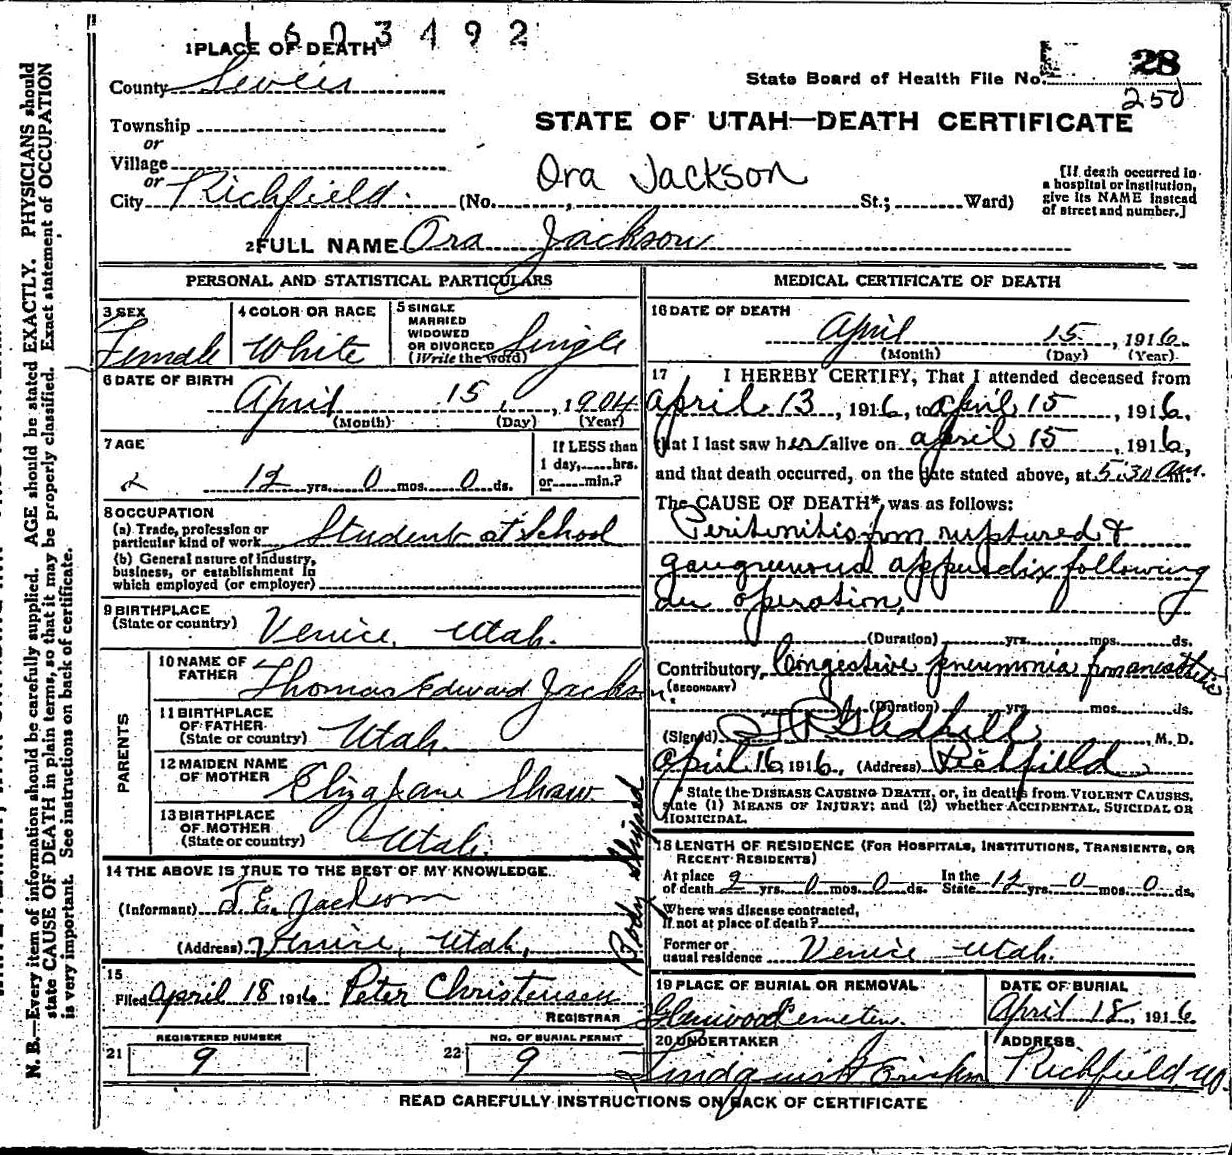 1603492
1 PLACE OF DEATH
State Board of Health File No. 28
250
County Sevier
STATE OF UTAH—DEATH CERTIFICATE
Township
or
Village
or
Ora Jackson
City Richfield (No. , St.; Ward)
[If death occurred in a hospital or institution, give its NAME instead of street and number.]
2 FULL NAME Ora Jackson
PERSONAL AND STATISTICAL PARTICULARS
3 SEX
Female
4 COLOR OR RACE
White
5 SINGLE
MARRIED
WIDOWED
OR DIVORCED
(Write the word) Single
6 DATE OF BIRTH
April 15, 1904
(Month) (Day) (Year)
7 AGE
12 yrs. 0 mos. 0 ds.
If LESS than
1 day, hrs.
or min.?
8 OCCUPATION
(a) Trade, profession or
particular kind of work Student at School
(b) General nature of industry,
business, or establishment in
which employed (or employer)
9 BIRTHPLACE
(State or country) Venice, Utah.
PARENTS
10 NAME OF
FATHER Thomas Edward Jackson
11 BIRTHPLACE
OF FATHER
(State or country) Utah.
12 MAIDEN NAME
OF MOTHER Eliza Jane Shaw
13 BIRTHPLACE
OF MOTHER
(State or country) Utah.
14 THE ABOVE IS TRUE TO THE BEST OF MY KNOWLEDGE
(Informant) T. E. Jackson
(Address) Venice, Utah,
15
Filed April 18 1916 Peter Christensen
REGISTRAR
21 REGISTERED NUMBER
9
22 NO. OF BURIAL PERMIT
9
Body Shipped
MEDICAL CERTIFICATE OF DEATH
16 DATE OF DEATH
April 15, 1916.
(Month) (Day) (Year)
17 I HEREBY CERTIFY, That I attended deceased from
April 13, 1916, to April 15, 1916,
that I last saw her alive on April 15, 1916,
and that death occurred, on the date stated above, at 5:30 am.
The CAUSE OF DEATH*, was as follows:
Peritonitis from ruptured &
gangrenous appendix following
an operation,
(Duration) yrs. mos. ds.
Contributory Congestive pneumonia from anesthetic
(SECONDARY)
(Duration) yrs. mos. ds.
(Signed) Gledhill, M. D.
April 16, 1916., (Address) Richfield
* State the DISEASE CAUSING DEATH, or, in deaths from VIOLENT CAUSES,
state (1) MEANS OF INJURY; and (2) whether ACCIDENTAL, SUICIDAL OR
HOMICIDAL.
18 LENGTH OF RESIDENCE (FOR HOSPITALS, INSTITUTIONS, TRANSIENTS, OR
RECENT RESIDENTS)
At place In the
of death 2 yrs. 0 mos. 0 ds. State 12 yrs. 0 mos. 0 ds.
Where was disease contracted,
if not at place of death?
Former or
usual residence Venice Utah.
19 PLACE OF BURIAL OR REMOVAL
Glenwood Cemetery.
DATE OF BURIAL
April 18, 1916.
20 UNDERTAKER
Lindquist &
ADDRESS
Richfield, Ut
READ CAREFULLY INSTRUCTIONS ON BACK OF CERTIFICATE
N. B.—Every item of information should be carefully supplied. AGE should be stated EXACTLY. PHYSICIANS should
state CAUSE OF DEATH in plain terms, so that it may be properly classified. Exact statement of OCCUPATION
is very important. See instructions on back of certificate.